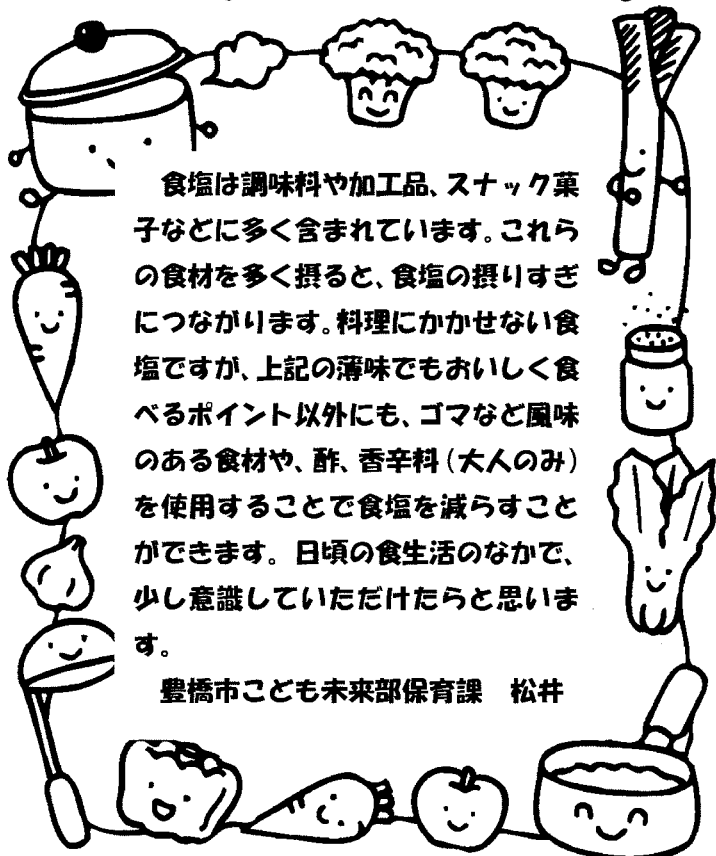 食塩は調味料や加工品、スナック菓
子などに多く含まれています。これら
の食材を多く摂ると、食塩の摂りすぎ
につながります。料理にかかせない食
塩ですが、上記の薄味でもおいしく食
べるポイント以外にも、ゴマなど風味
のある食材や、酢、香辛料(大人のみ)
を使用することで食塩を減らすこと
ができます。日頃の食生活のなかで、
少し意識していただけたらと思いま
す。
豊橋市こども未来部保育課 松井